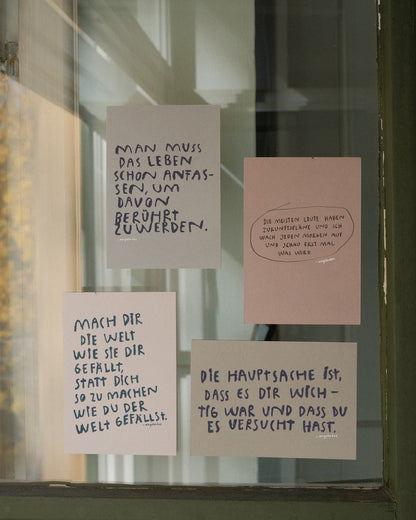 MAN MUSS
DAS LEBEN
SCHON ANFAS-
SEN, UM
DAVON
BERÜHRT
ZU WERDEN.
DIE MEISTEN LEUTE HABEN
ZUKUNFTSPLÄNE UND ICH
WACH JEDEN MORGEN AUF
UND SCHAU ERST MAL
WAS WIRD.
MACH DIR
DIE WELT
WIE SIE DIR
GEFÄLLT,
STATT DICH
SO ZU MACHEN
WIE DU DER
WELT GEFÄLLST.
DIE HAUPTSACHE IST,
DASS ES DIR WICH-
TIG WAR UND DASS DU
ES VERSUCHT HAST.